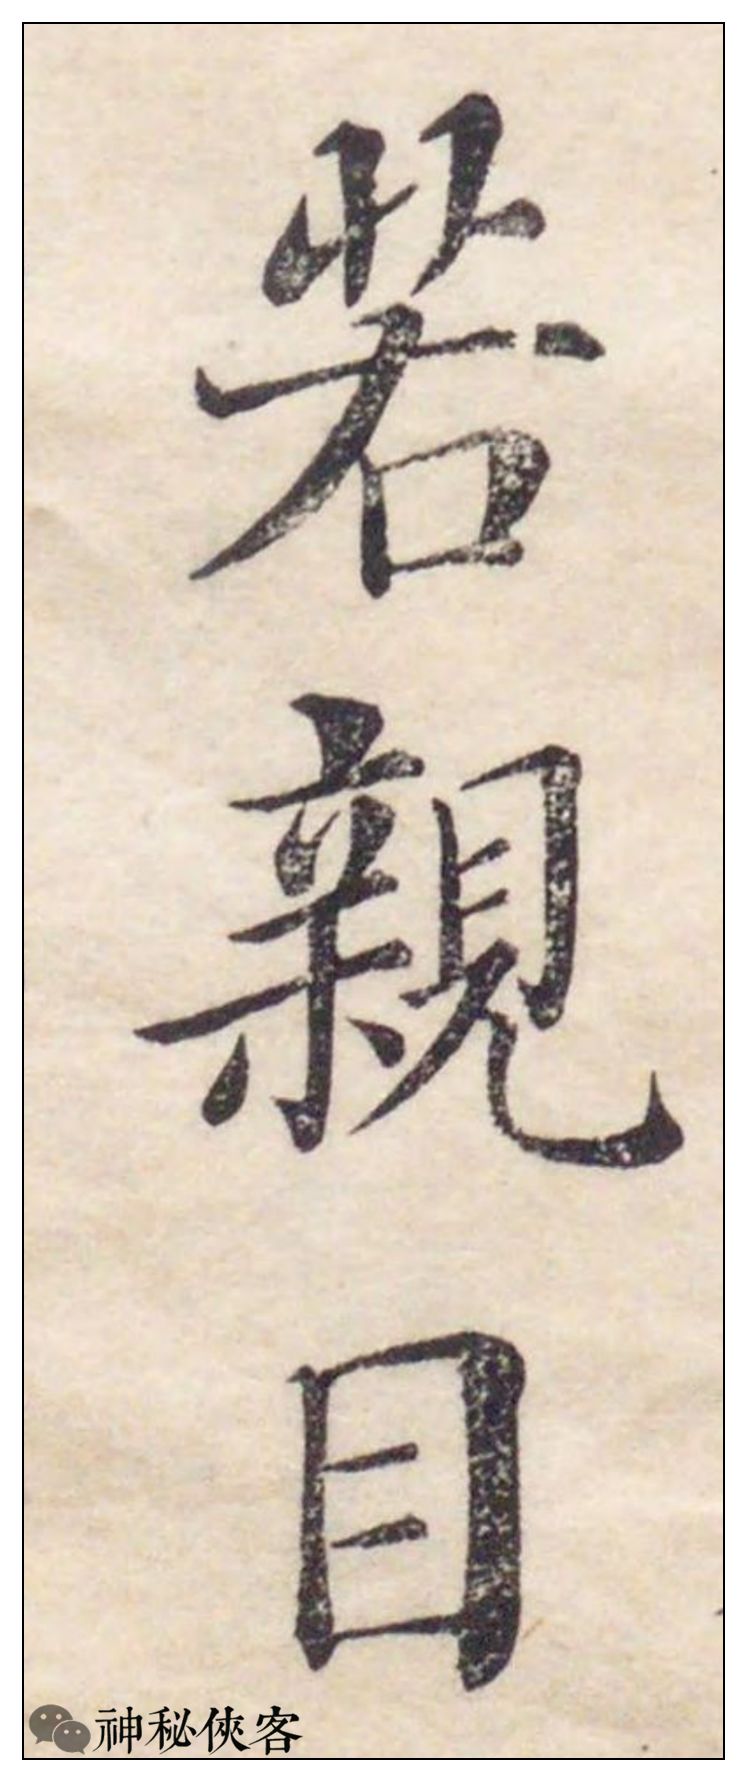 若親目
神秘俠客